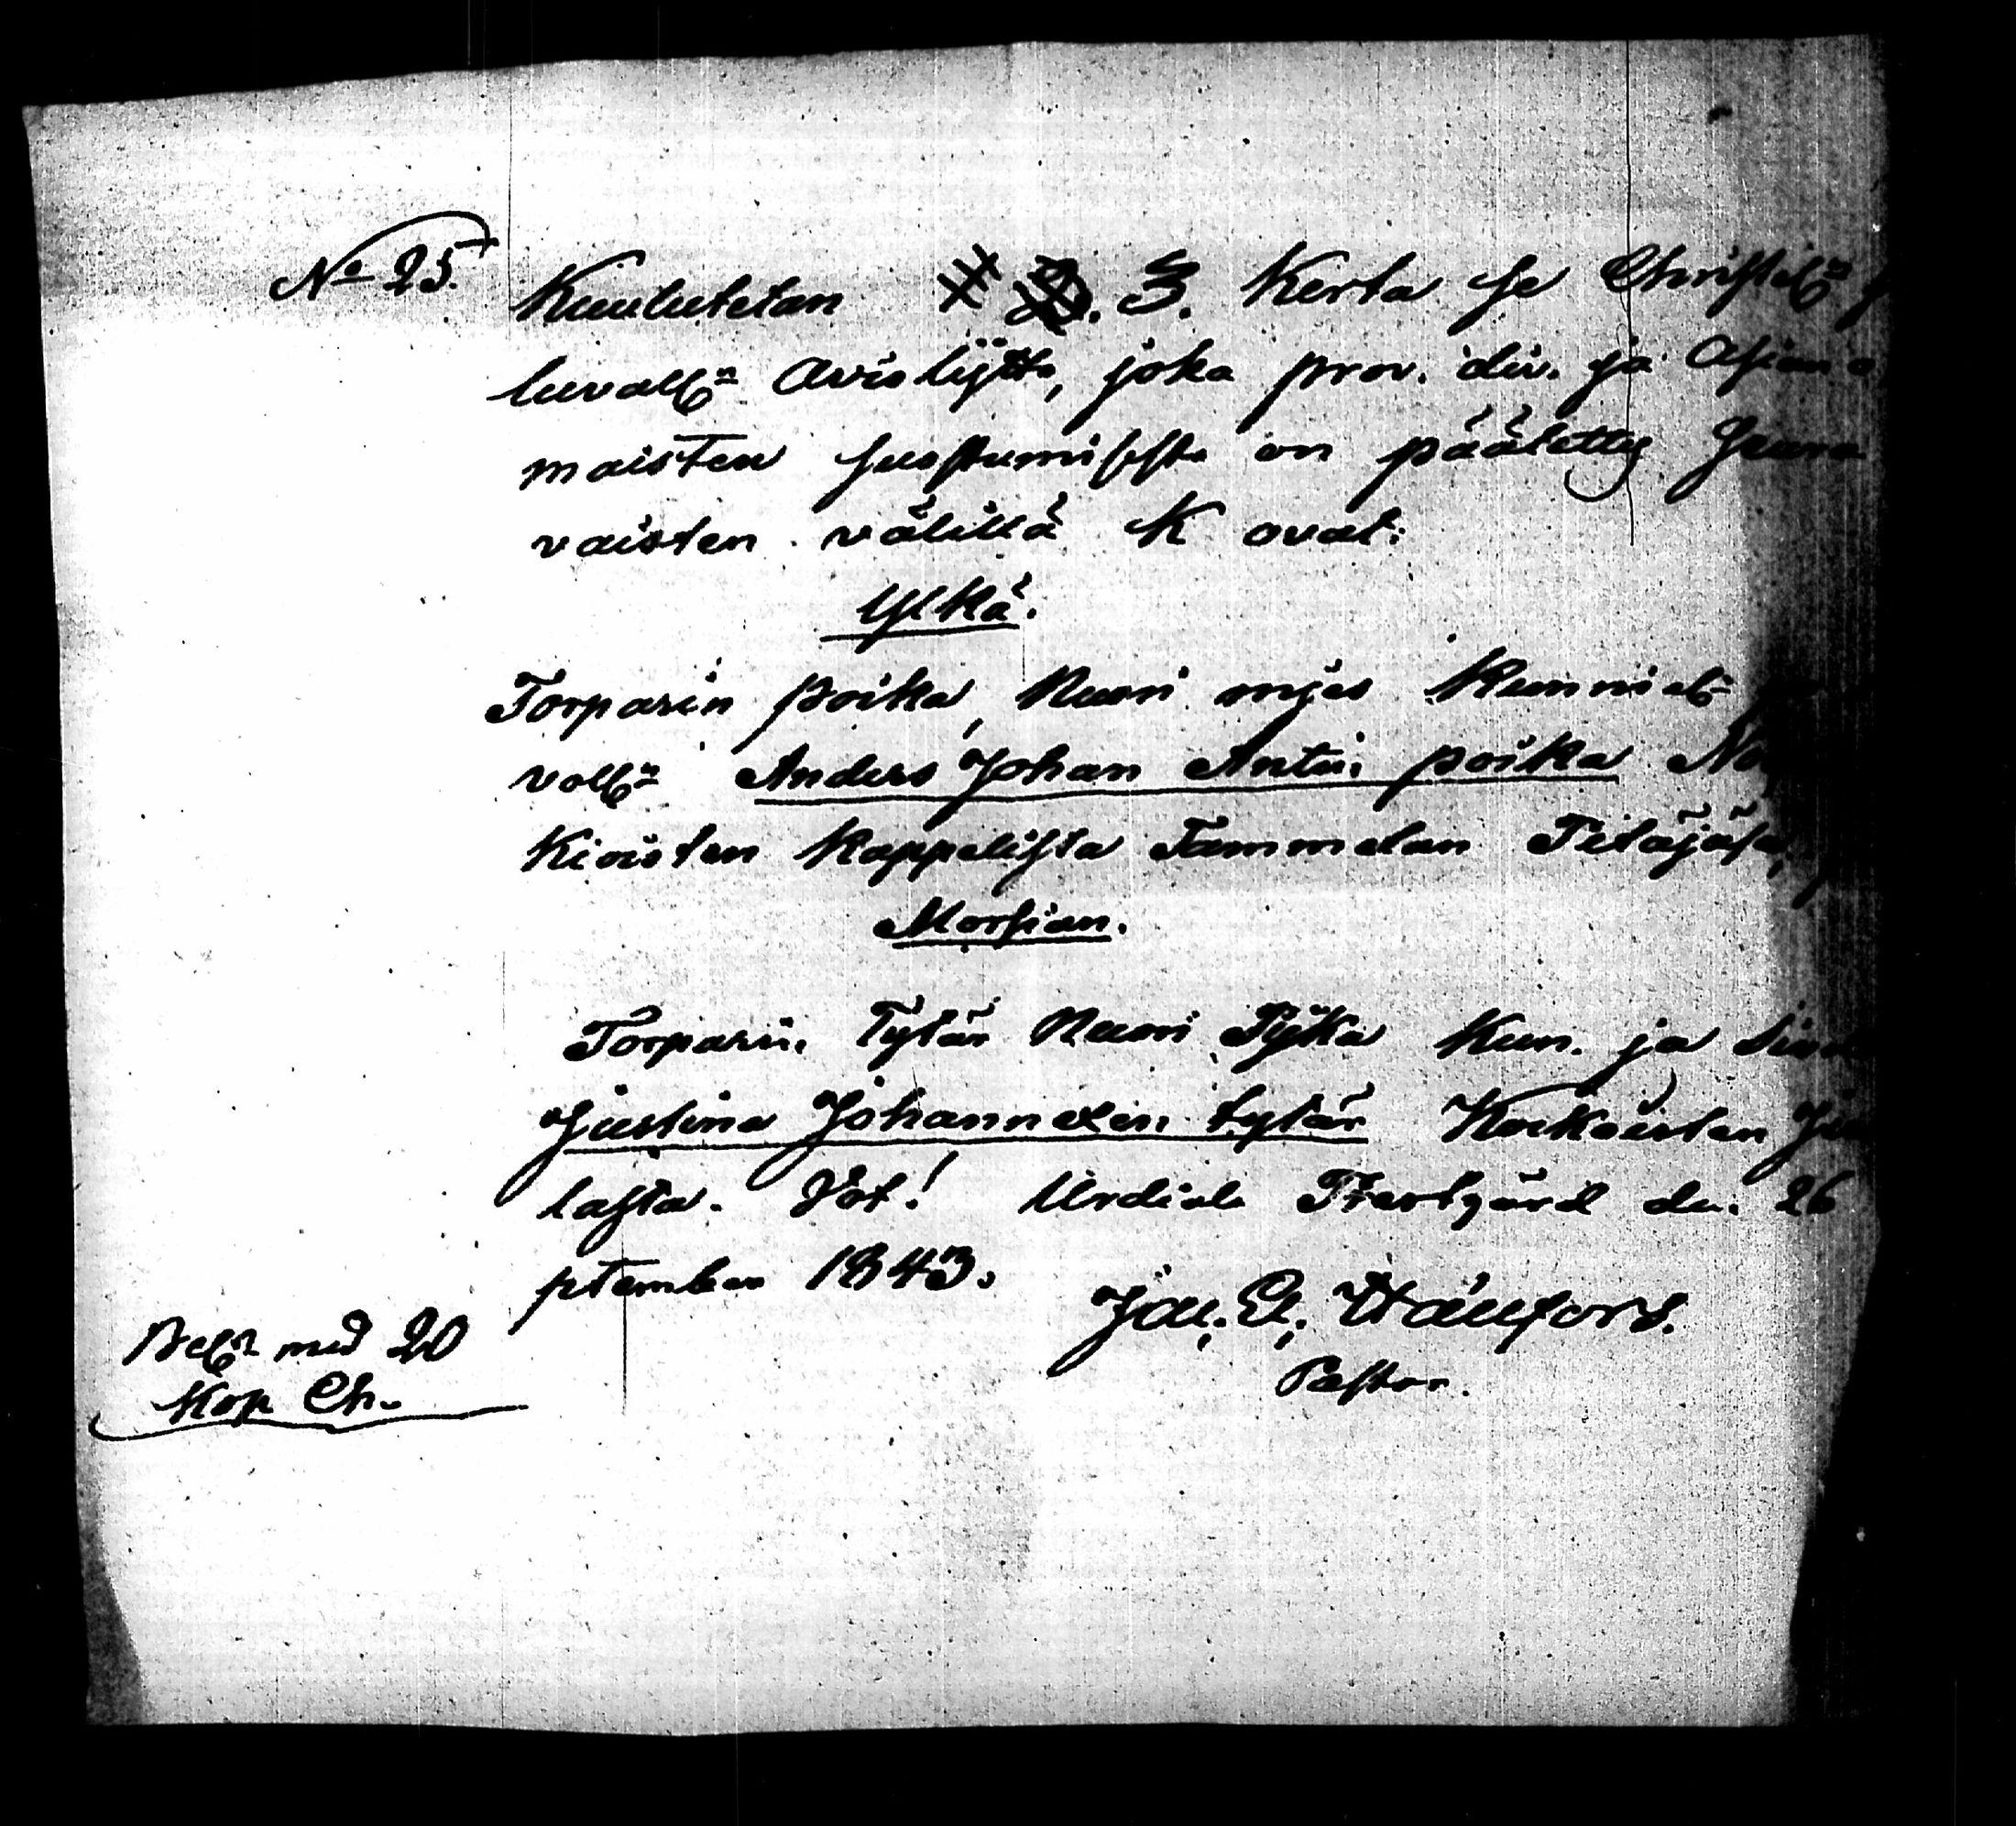 No 25.
Kuulutetan 3. Kerta se Christel:n
luvall:n Avioliitto, joka prov. div. ja Asian o
maisten suostumisesta on päätetty Seura
vaisten välillä K ovat:
Ylkä.
Torparin poika, Nuori mies Kunniat
voll:n Anders Johan Antin poika
Kioisten Kappelista Tammelan Pitäjäsä,
Morsian.
Torparin Tytär Nuori Pijka Kun. ja Siv
Justina Johannexen tytär Kockoisten
lasta. Vot! Urdiala Prestgård den 26
ptember 1843.
Pastor.
Bel:n med 20
Kop Ch.